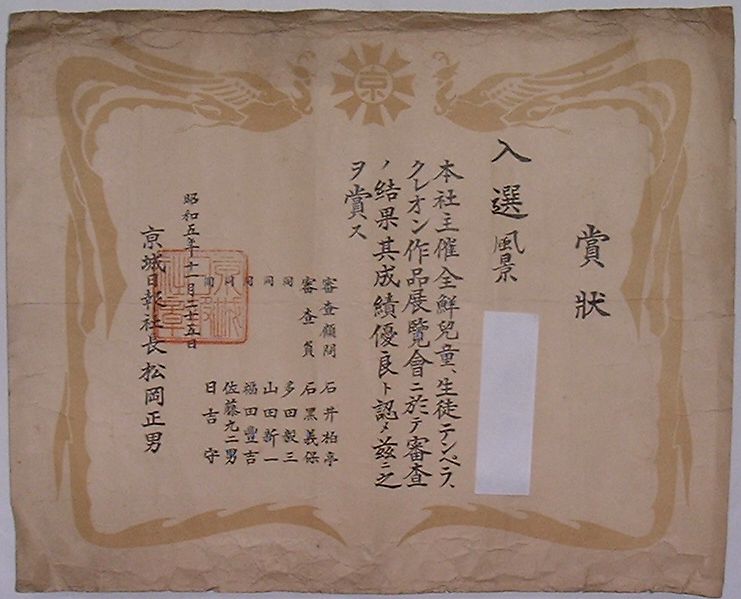 京
賞狀
入選 風景
本社主催全鮮兒童、生徒テンペラ、
クレオン作品展覽會ニ於テ審査
ノ結果其成績優良ト認メ茲ニ之
ヲ賞ス
審査顧問 石井柏亭
審査員 石黑義保
同 多田毅三
同 山田新一
同 福田豐吉
同 佐藤九二男
同 日吉守
昭和五年十一月二十五日
京城日報社長 松岡正男
京城日報社章